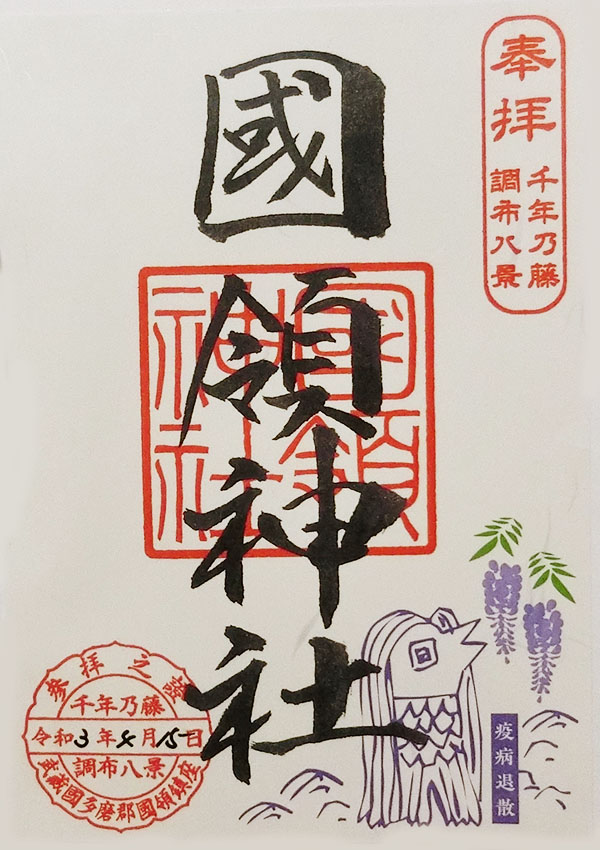 奉拝
千年乃藤
調布八景
國領神社
國領神社
参拝之證
千年乃藤
令和3年4月15日
調布八景
武蔵國多磨郡國領鎮座
疫病退散